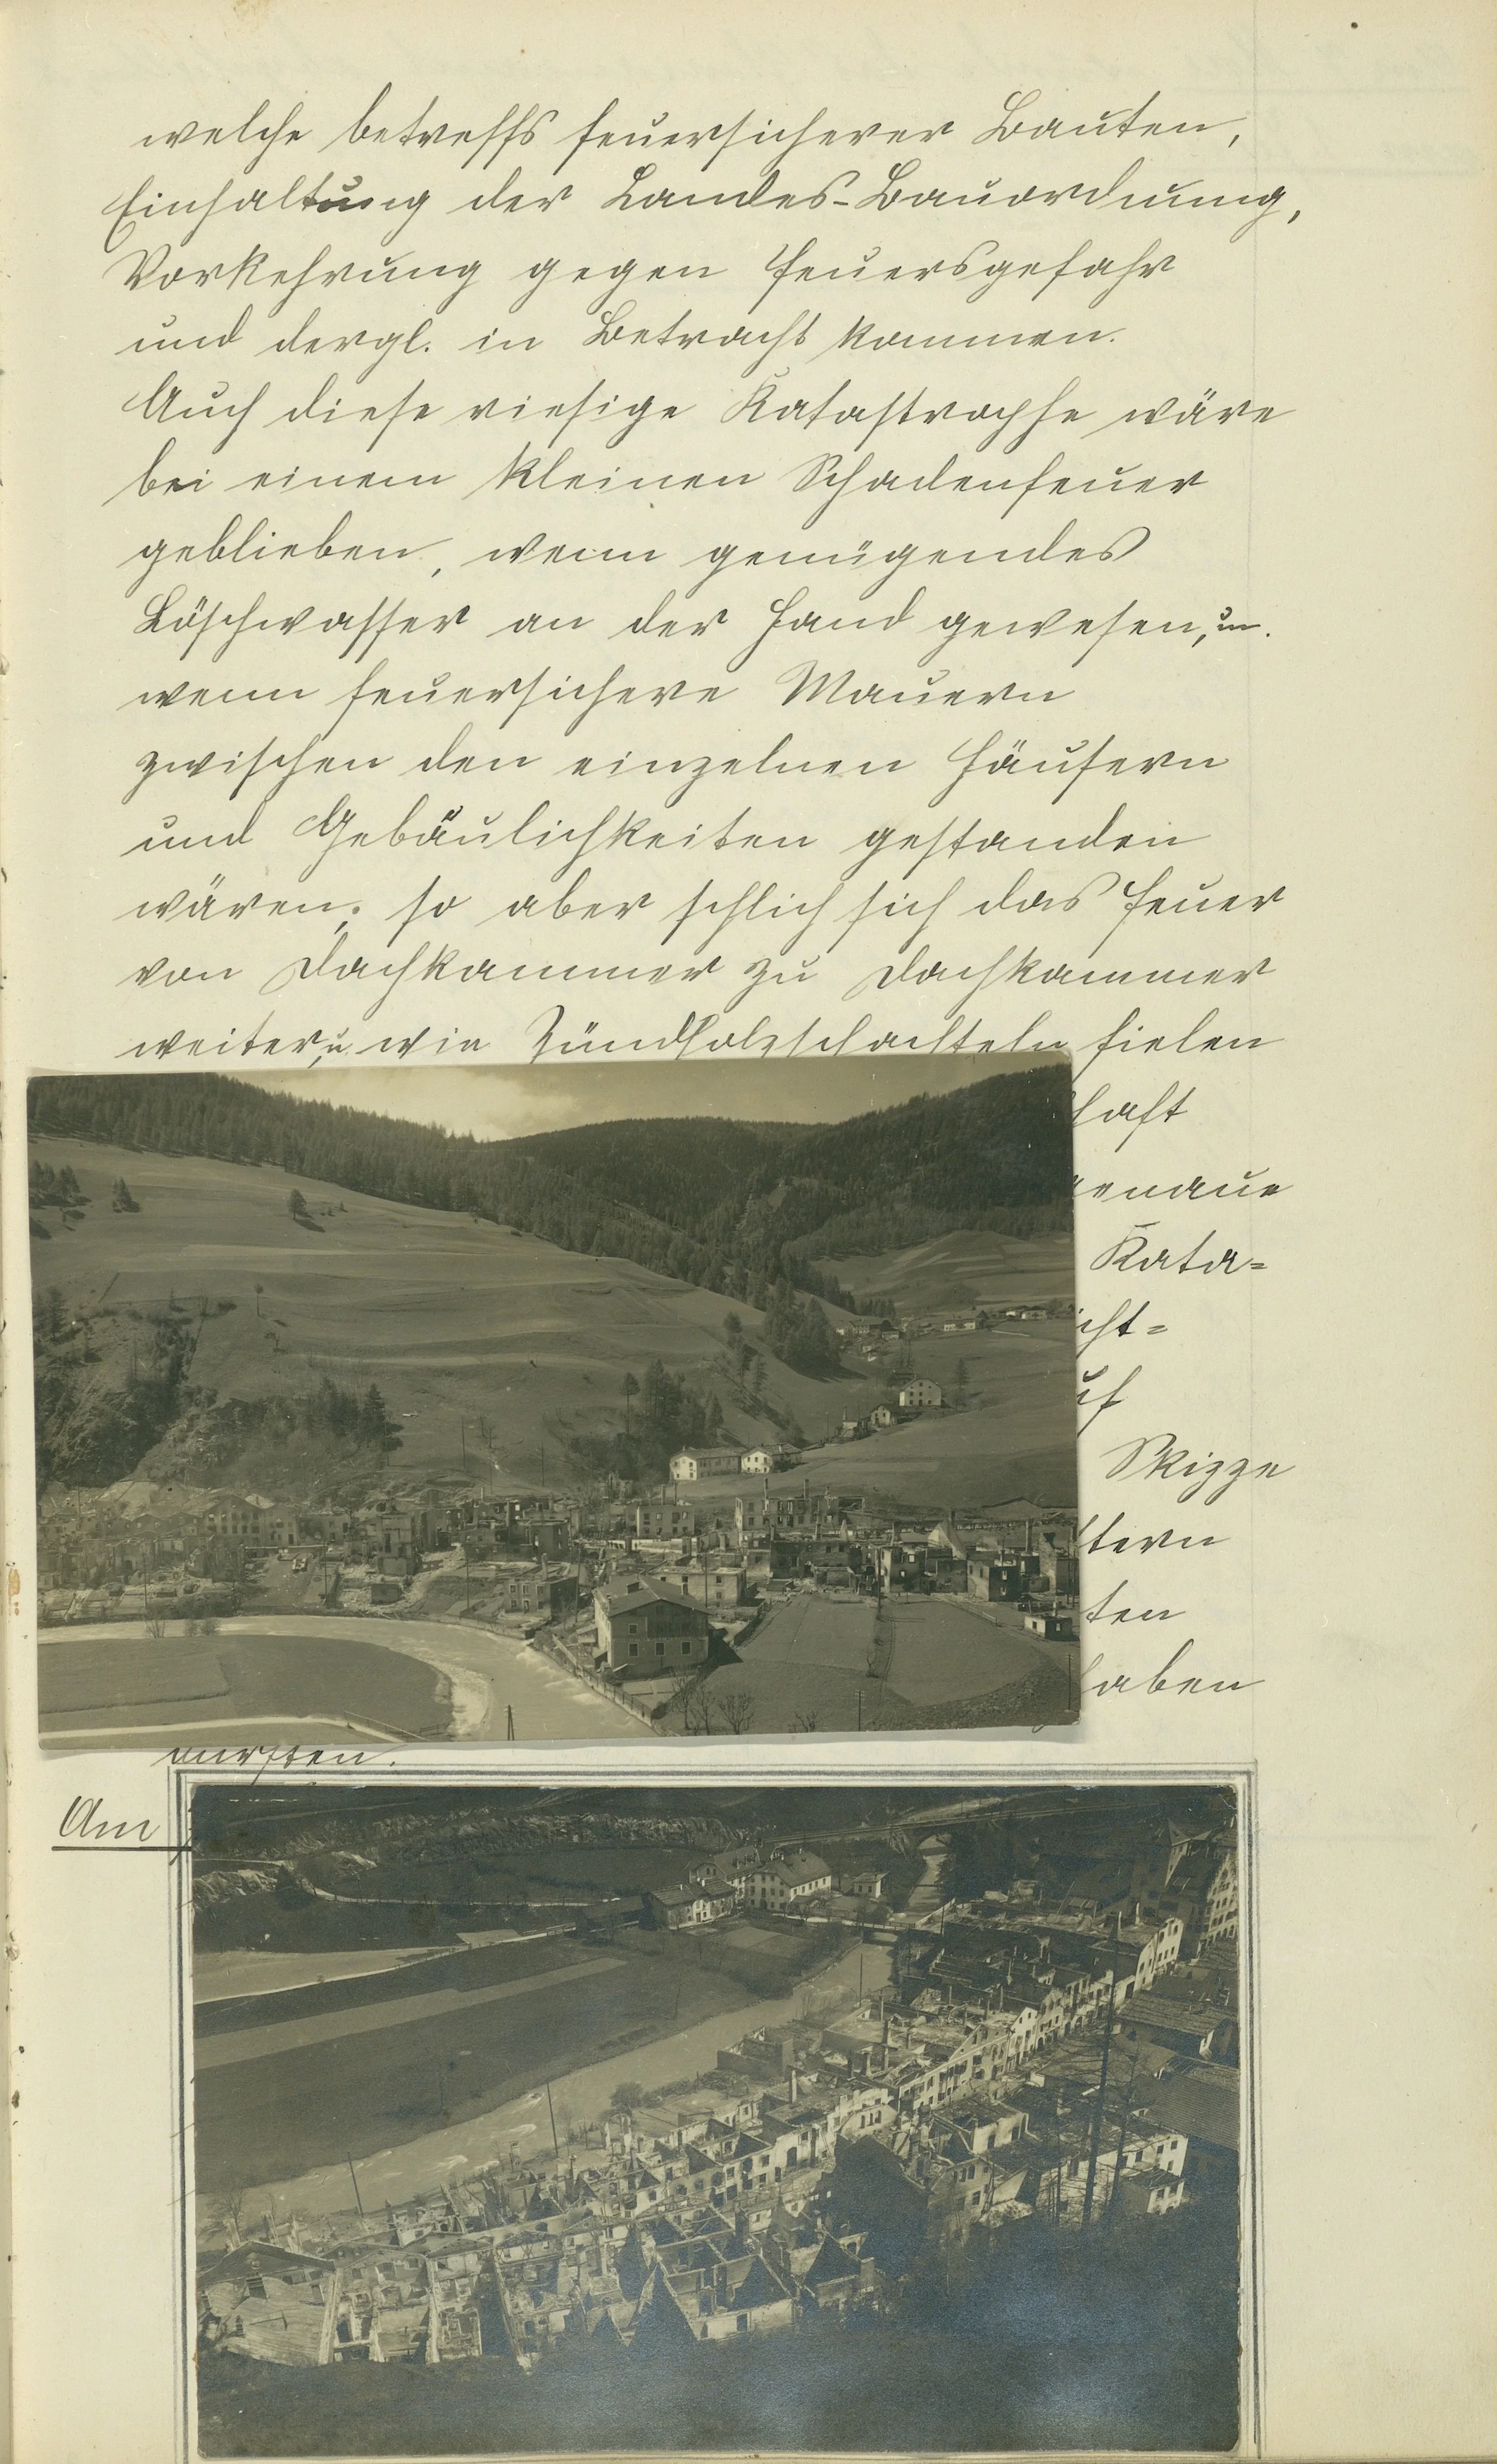 welche betreffs feuersicherer Bauten,
Einhaltung der Landes-Bauordnung,
Vorkehrung gegen Feuersgefahr
und dergl. in Betracht kommen.
Auch diese riesige Katastrophe wäre
bei einem kleinen Schadenfeuer
geblieben, wenn genügendes
Löschwasser an der Hand gewesen, u.
wenn feuersichere Mauern
zwischen den einzelnen Häusern
und Gebäulichkeiten gestanden
wären; so aber schlich sich das Feuer
von Dachkammer zu Dachkammer
weiter, u. wie Zündholzschachteln fielen
haft
genaue
Kata=
icht=
uf
Skizze
tern
ten
haben
durften.
Am